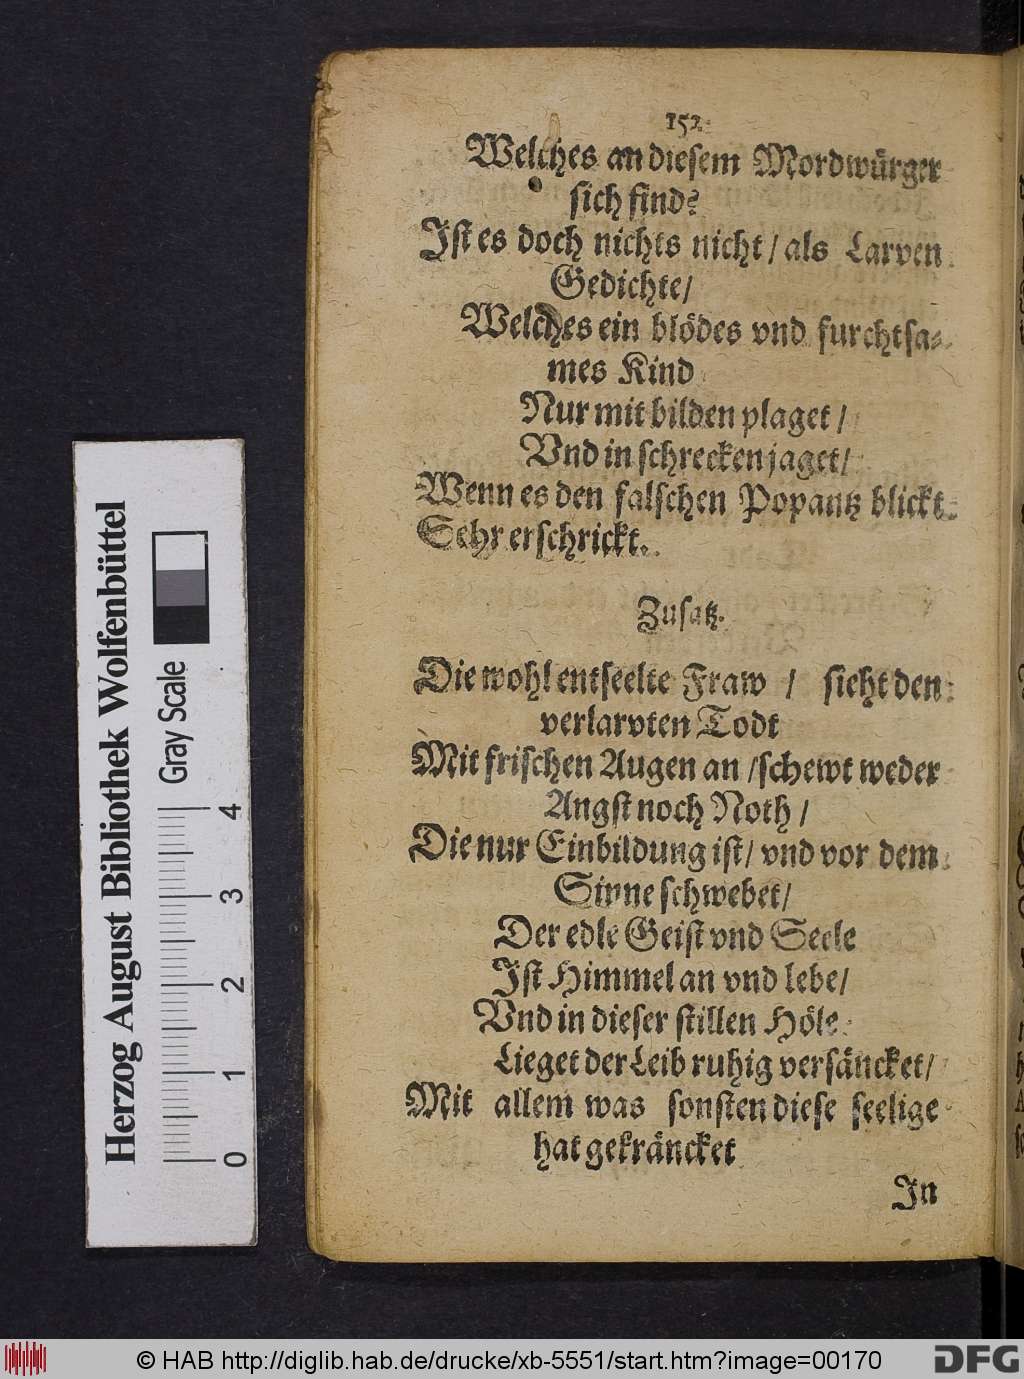 152
Welches an diesem Mordwürger
sich find?
Ist es doch nichts nicht / als Larven
Gedichte /
Welches ein blödes vnd furchtsa-
mes Kind
Nur mit bilden plaget /
Vnd in schrecken jaget /
Wenn es den falschen Popantz blickt
Sehr erschrickt.
Zusatz.
Die wohl entseelte Fraw / sieht den
verlarvten Todt
Mit frischen Augen an / schewt weder
Angst noch Noth /
Die nur Einbildung ist / vnd vor dem
Sinne schwebet /
Der edle Geist vnd Seele
Ist Himmel an vnd lebe /
Vnd in dieser stillen Höle
Lieget der Leib ruhig versäncket /
Mit allem was sonsten diese seelige
hat gekräncket
In
Herzog August Bibliothek Wolfenbüttel
Gray Scale
0 1 2 3 4
© HAB http://diglib.hab.de/drucke/xb-5551/start.htm?image=00170
DFG